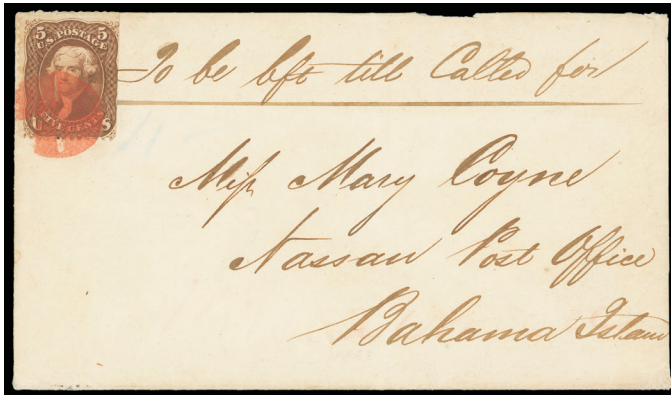 5 5
U.S. POSTAGE
FIVE CENTS
U S
To be left till Called for
Miſs Mary Coyne
Nassau Post Office
Bahama Islan